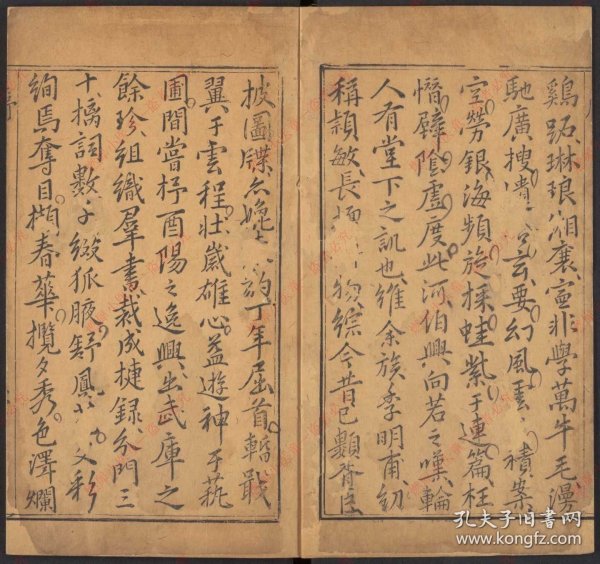 鷄跖琳琅湘裹寔非學萬牛毛漫
馳廣搜凟玄要幻風雲積案
空勞銀海頻施採蛙紫于連篇枉
惛驛陰虛度此河伯興向若之嘆輪
人有堂下之訊也維余族季明甫幼
稱穎敏長綜今昔已顯脊臣
披圖牒亦韵丁年屈首轄戢
翼于雲程壯歲雄心益遊神于藝
圃間嘗抒酉陽之逸興出武庫之
餘珍組織羣書裁成捷録分門三
十摛詞數千綴狐腋舒鳳文彩
絢焉奪目擷春華攬夕秀色澤爛
孔夫子旧书网
www.kongfz.com